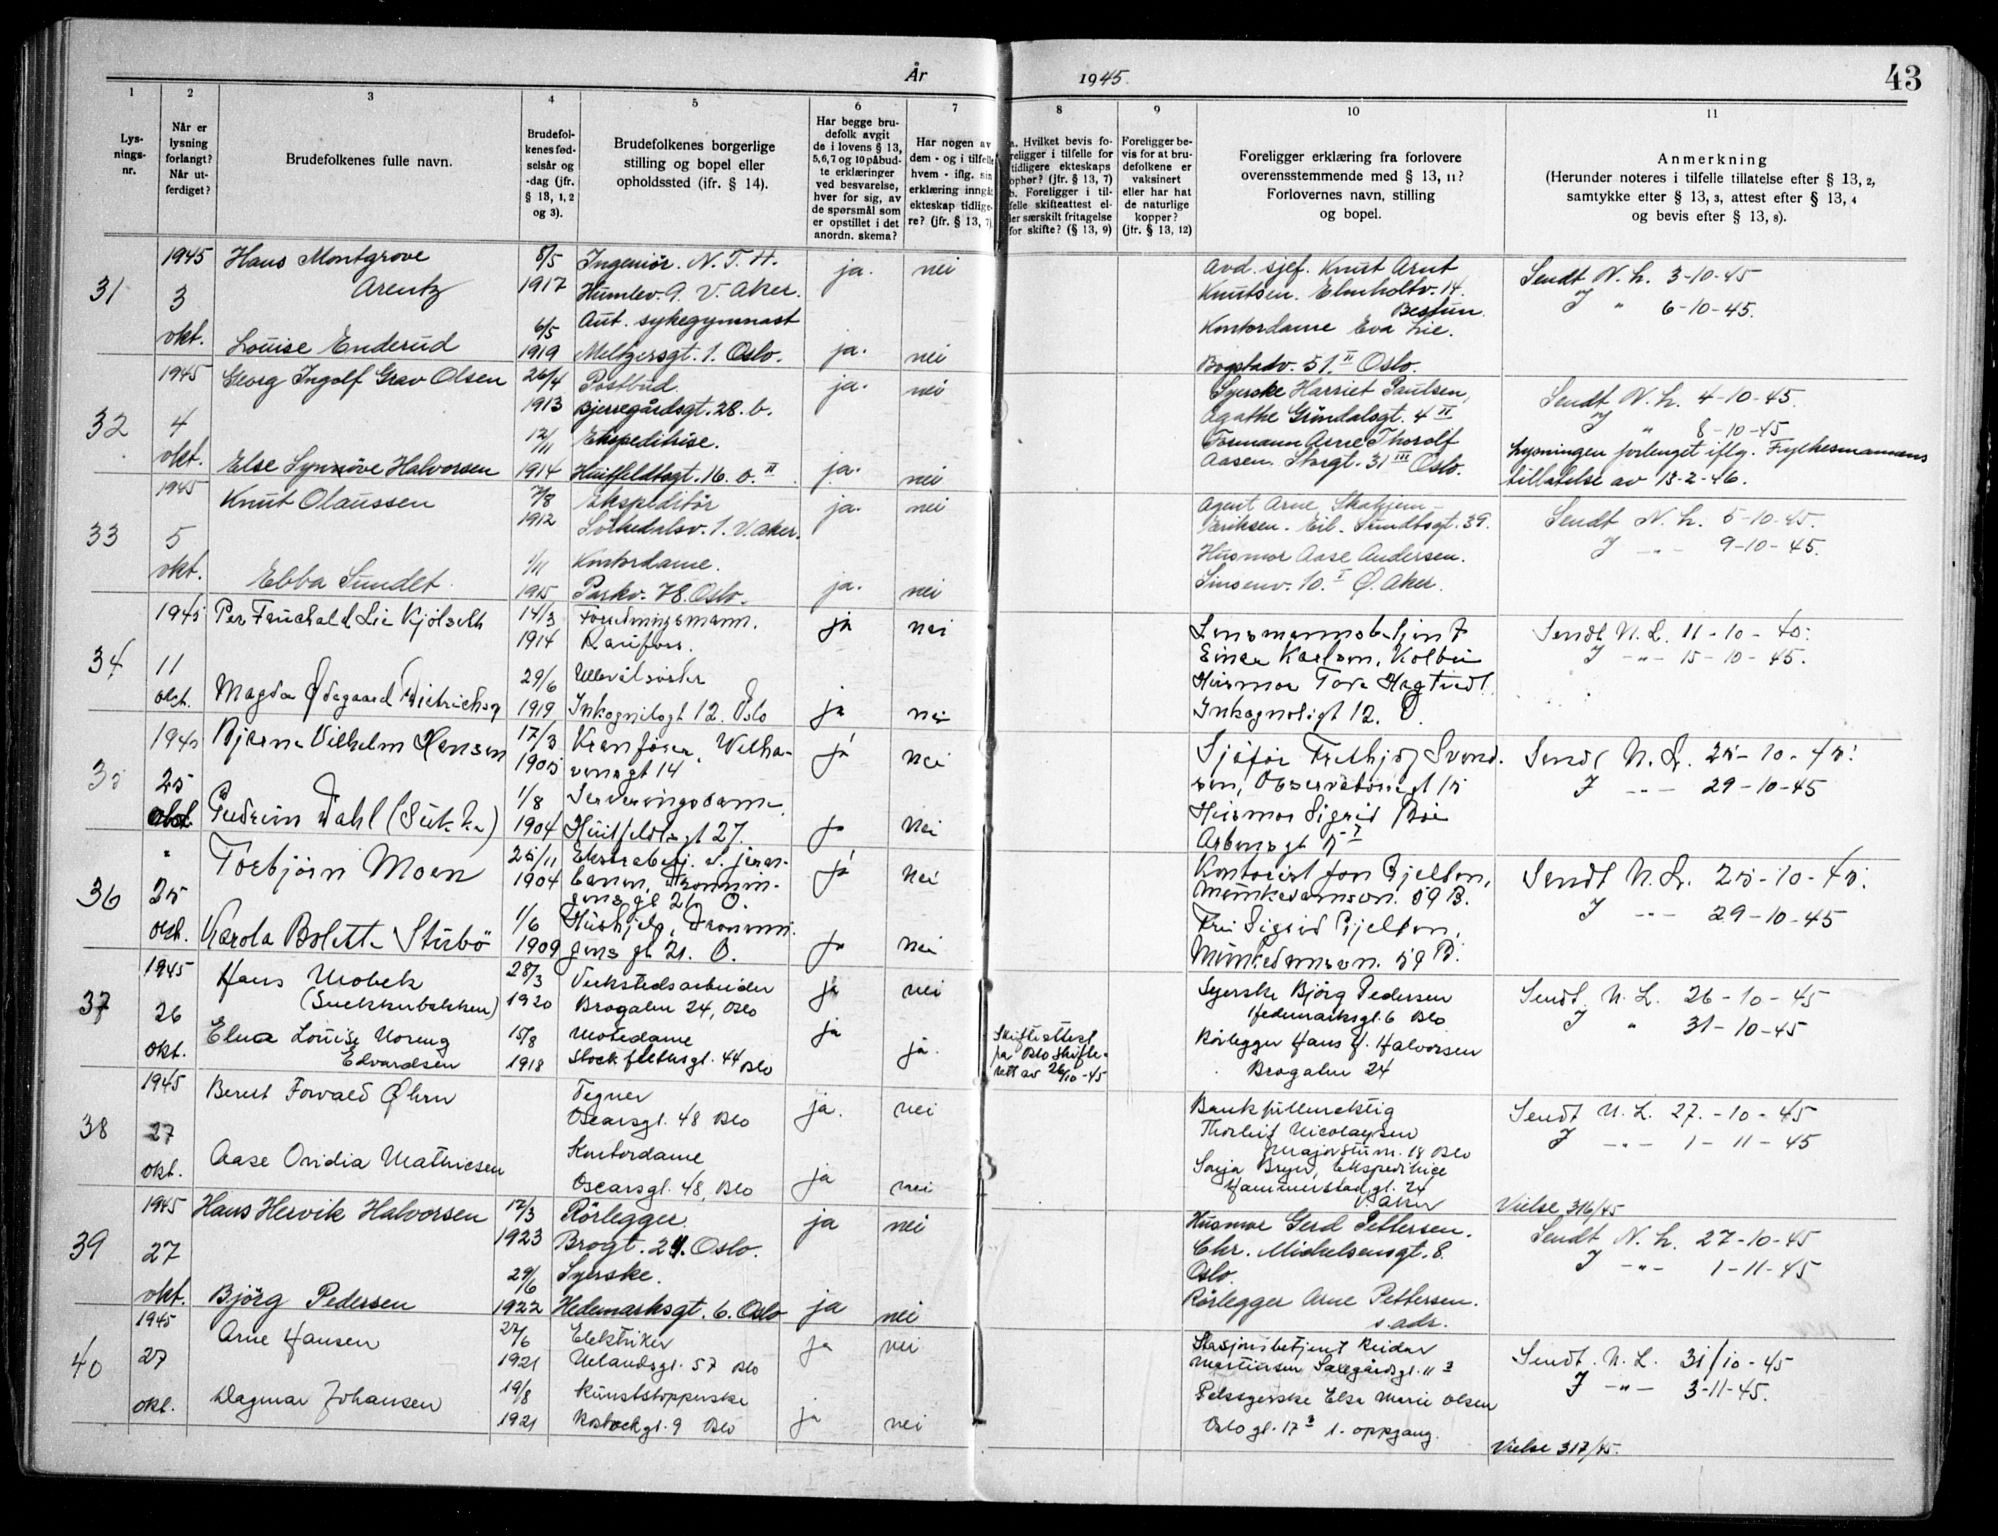 År 1945.
43
1
2
3
4
5
6
7
8
9
10
11
Lys-
nings-
nr.
Når er
lysning
forlangt?
Når ut-
ferdiget?
Brudefolkenes fulle navn.
Brudefol-
kenes fød-
selsår og
-dag (jfr.
§ 13, 1, 2
og 3).
Brudefolkenes borgerlige
stilling og bopel eller
opholdssted (ifr. § 14).
Har begge bru-
defolk avgit
de i lovens § 13,
5,6,7 og 10 påbud-
te erklæringer
ved besvarelse,
hver for sig, av
de spørsmål som
er opstillet i det
anordn. skema?
Har nogen av
dem - og i tilfelle
hvem - iflg. sin
erklæring inngåt
ekteskap tidlige-
re? (jfr. § 13, 7)
a. Hvilket bevis fo-
religger i tilfelle for
tidligere ekteskaps
ophør? (jfr. § 13, 7)
b. Foreligger i til-
felle skifteattest el-
ler særskilt fritagelse
for skifte? (§ 13, 9)
Foreligger be-
vis for at bru-
defolkene er
vaksinert
eller har hat
de naturlige
kopper?
(jfr. § 13, 12)
Foreligger erklæring fra forlovere
overensstemmende med § 13, 11?
Forlovernes navn, stilling
og bopel.
Anmerkning
(Herunder noteres i tilfelle tillatelse efter § 13, 2,
samtykke etter § 13, 3, attest efter § 13, 4
og bevis efter § 13, 8).
31
1945
3
okt.
Hans Montgrove
Arentz
8/5
1917
Ingeniör. N.T.H.
Humlev. 9. V. Aker.
ja.
nei
Louise Enderud
6/5
1919
Aut. sykegymnast
Meltzersgt. 1. Oslo.
ja.
nei
Avd. sjef. Knut Arnt
Knutsen. Elmholtv. 14.
Bestun.
Kontordame Eva Lie.
Bogstadv. 51. II Oslo.
Sendt N. L. 3-10-45
J " 6-10-45.
32
1945
4
okt.
Georg Ingolf Grav Olsen
26/4
1913
Postbud.
Bjerregårdsgt. 28. b.
ja.
nei
Else Synnöve Halvorsen
12/11
1914
Ekspeditrise.
Huitfeldtsgt. 16. o. II
ja.
nei
Syerske Harriet Paulsen,
Agathe Gröndalsgt. 4 II
Formann Arne Thorolf
Aasen. Storgt. 31 III Oslo.
Sendt N. L. 4-10-45.
J " 8-10-45
Lysningen forlenget iflg. Fylkesmannens
tillatelse av 13-2-46.
33
1945
5
okt.
Knut Olaussen
7/8
1912
Ekspeditör
Sörkedalsv. 1. V. Aker.
ja.
nei
Ebba Sundet.
1/11
1915
Kontordame.
Parkv. 78. Oslo.
ja.
nei
Agent Arne
Eriksen. Eil. Sundtsgt. 39.
Husmor Aase Andersen.
Sinsenv. 10. I Ø. Aker.
Sendt N. L. 5-10-45.
J -"- 9-10-45.
34
1945
11
okt.
Per Lie Kjölseth
14/3
1914
Forretningsmann.
Raufoss.
ja
nei
Magda Ødegaard
29/6
1919
Ullevålsöster
Inkognitogt 12. Oslo
ja
nei
Lensmannsbetjent
Einar Karlsen, Kolbu
Husmor Tove
Inkognitogt 12. O.
Sendt N. L. 11-10-45.
J -"- 15-10-45.
35
1945
25
okt.
Bjarne Vilhelm Hansen
17/3
1905
Kranförer, Welha-
vensgt 14
ja
nei
Gudrun Dahl
1/8
1904
Serveringsdame
Huitfeldtsgt 27.
ja
nei
Sjåför Frithjof Svend-
sen, Observatoriegt 15
Husmor Sigrid
Arbensgt 5 I
Sendt N. L. 25-10-45.
J -"- 29-10-45
36
"
25
okt.
Torbjörn Moen
25/11
1904
Ekstrabetj. v. jern-
banen, Dronnin-
gens gt 21 O.
ja
nei
Karola Bolette Sturbö
1/6
1909
Hushjelp, Dronnin-
gens gt 21. O.
ja
nei
Kontorist Jon Gjelten,
Munkedamsvn. 59 B.
Fru Sigrid Gjelten,
Munkedamsvn. 59 B.
Sendt N. L. 25-10-45.
J -"- 29-10-45
37
1945
26
okt.
Hans Mobek
(Snekkerbakken)
28/3
1920
Verkstedsarbeider
Brogaten 24, Oslo
ja
nei
Elna Louise Noreng
Edvardsen
15/8
1918
Motedame
Stockfletsgt. 44 Oslo
ja
ja.
Skifteattest
fra Oslo skifte-
rett av 26/10-45
Syerske Björg Pedersen
Hedemarksgt. 6 Oslo
Rörlegger Hans H. Halvorsen
Brogaten 24
Sendt N. L. 26-10-45
J " 31-10-45
38
1945
27
okt.
Bernt Forvald Öhrn
Tegner
Oscarsgt. 48 Oslo
ja.
nei
Aase Ovidia Mathiesen
Kontordame
Oscarsgt. 48, Oslo
ja
nei
Bankfullmektig
Thorleif Nicolaysen
Majorstuvn. 18 Oslo
Sonja Bryn, Ekspeditrice
Hammerstadgt. 24
V. Aker
Sendt N. L. 27.-10-45
J -"- 1-11-45
Vielse 316/45
39
1945
27
okt.
Hans Hervik Halvorsen
12/3
1923
Rörlegger.
Brogt. 24. Oslo.
ja
nei
Björg Pedersen
29/6
1922
Syerske.
Hedemarksgt. 6. Oslo
ja
nei
Husmor Gerd Pettersen.
Chr. Mickelsensgt. 8.
Oslo.
Rörlegger Arne Pettersen.
s. adr.
Sendt N. L. 27-10-45
J -"- 1-11-45
40
1945
27
okt.
Arne Hansen
27/6
1921
Elektriker
Uelandsgt. 57 Oslo
ja
nei
Dagmar Johansen
19/8
1921
Kunststopperske
Rostockgt. 9 Oslo
ja
nei
Stasjonsbetjent Reidar
Martinsen Saxegårdsgt. 11 3
Pelssyerske Else Marie Olsen
Oslo gt. 17 3 1. oppgang.
Sendt. N. L. 31/10-45
J -"- 3-11-45.
Vielse 317/45.